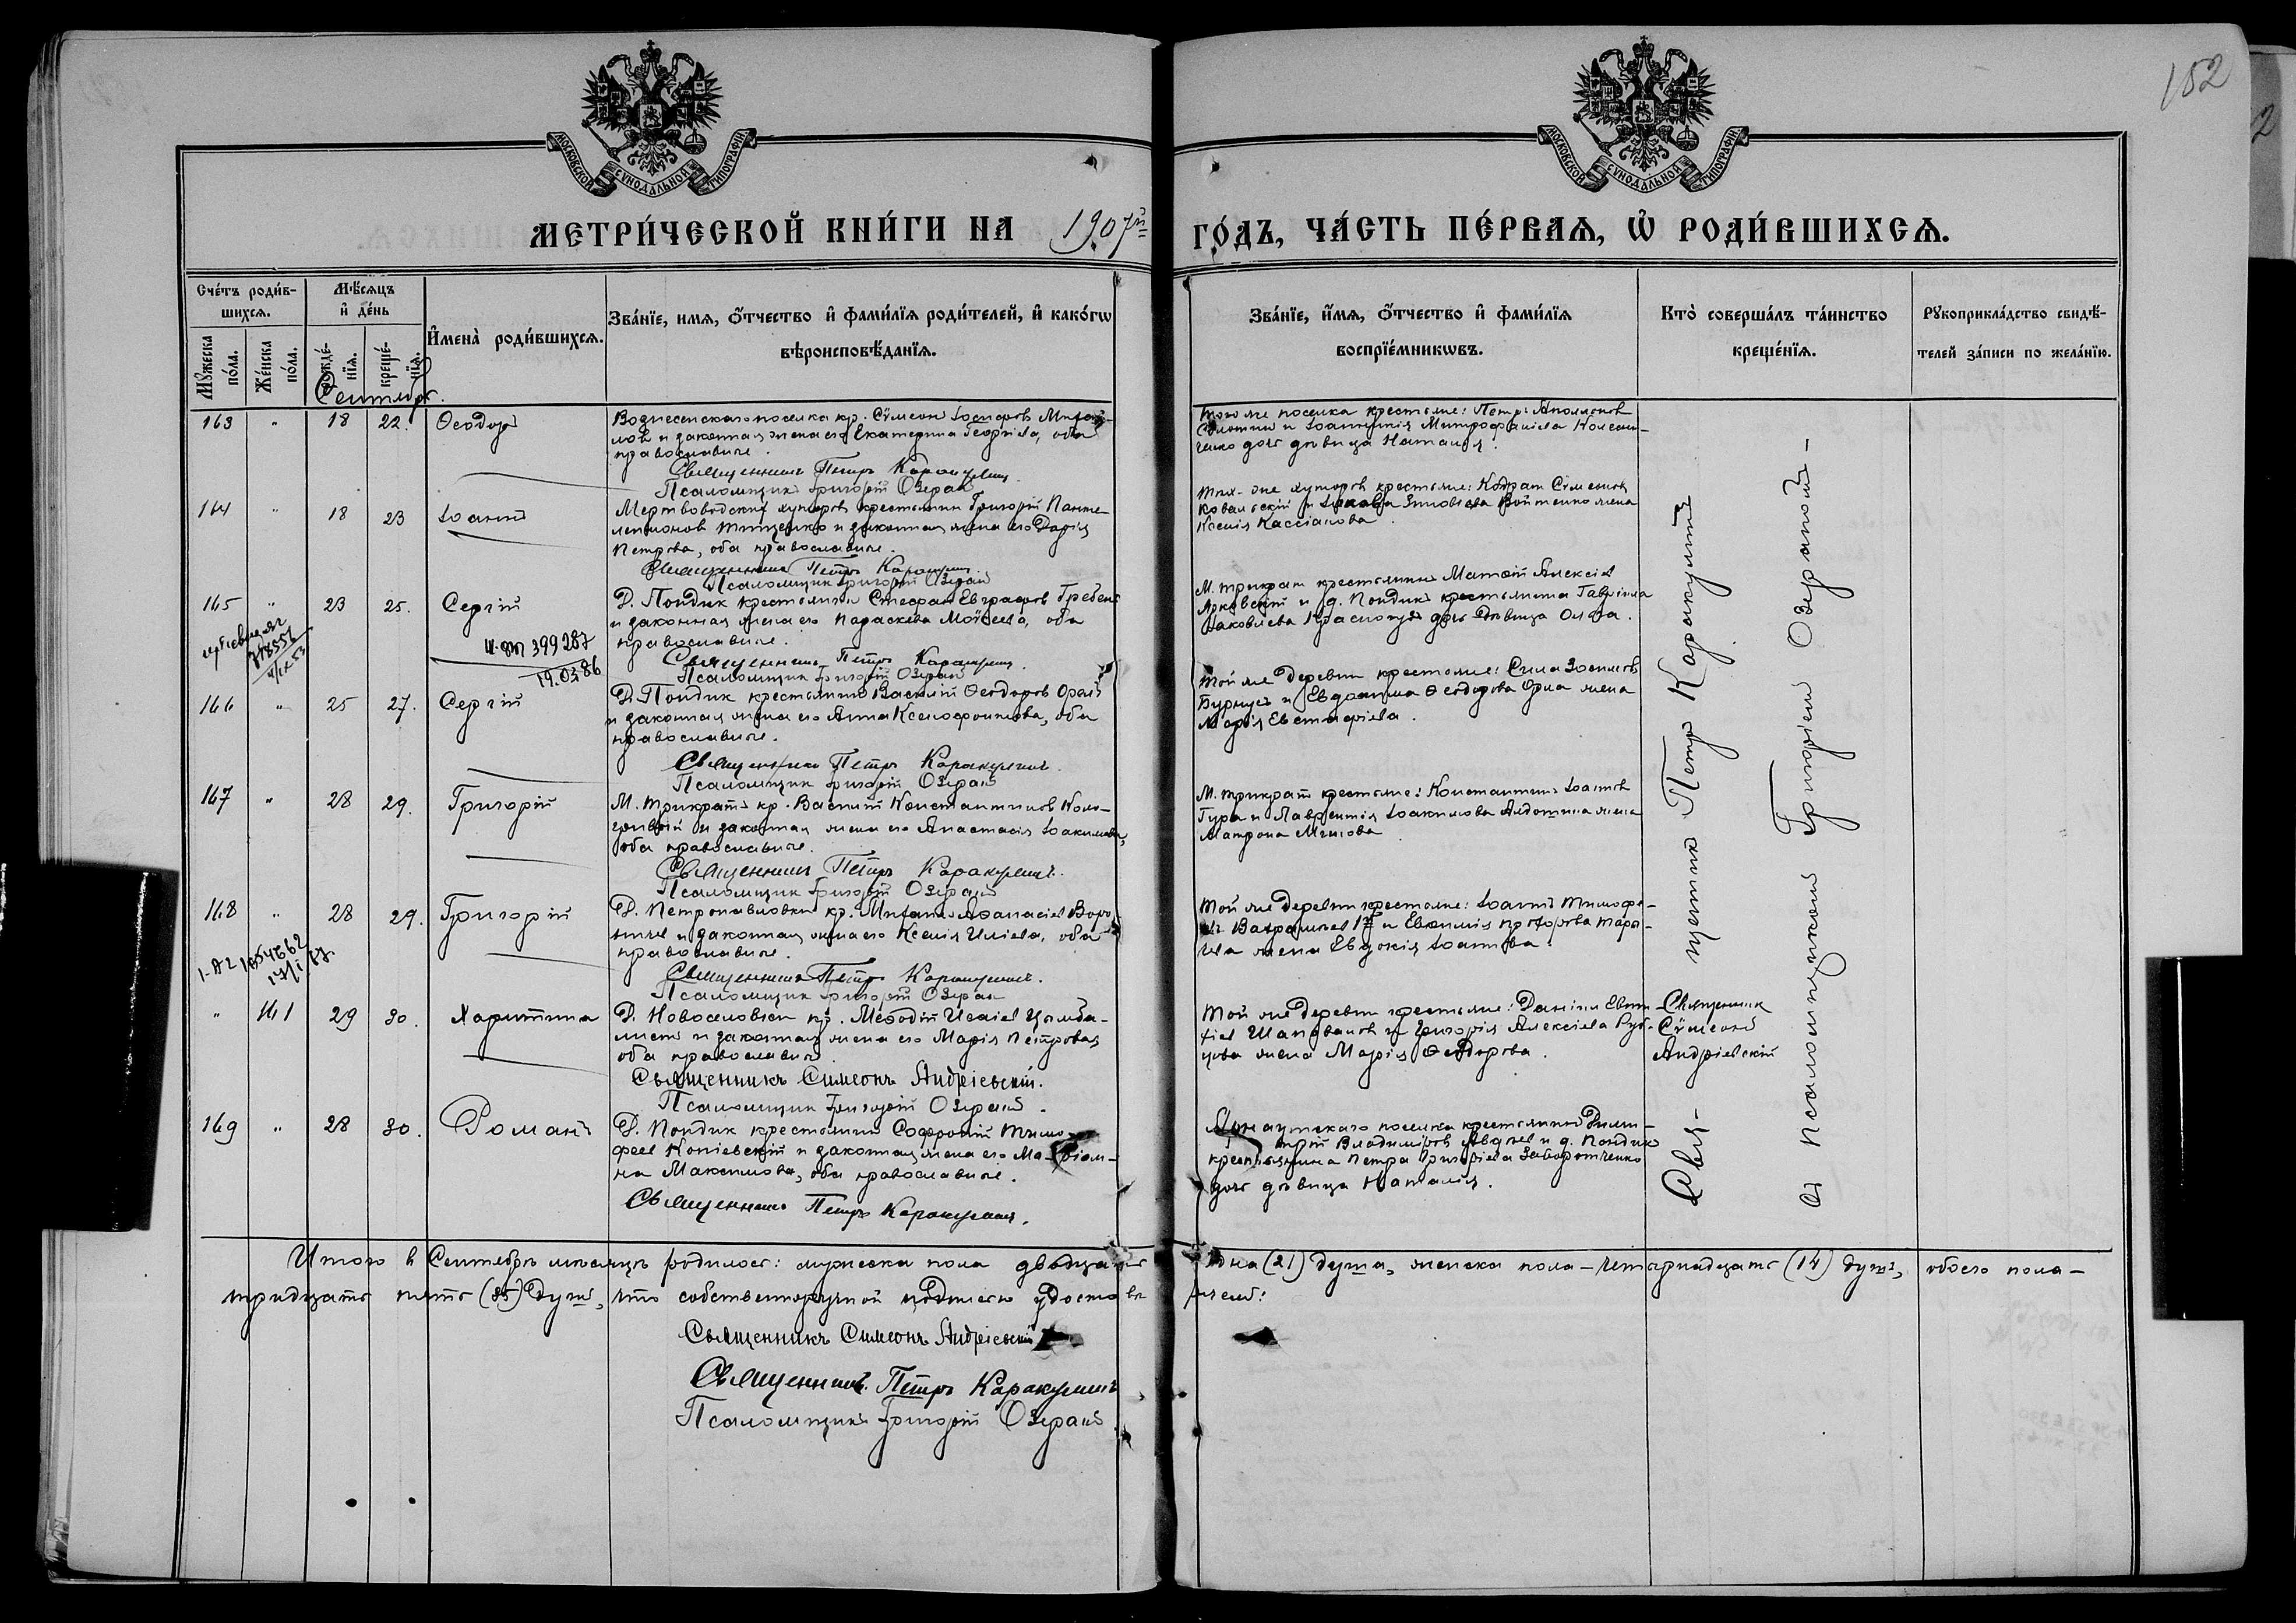 152
2
МОСКОВСКОЙ СѴНОДАЛЬНОЙ ТИПОГРАФІИ
МОСКОВСКОЙ СѴНОДАЛЬНОЙ ТИПОГРАФІИ
МЕТРИ́ЧЕСКОЙ КНИ́ГИ НА 1907й
ГО́ДЪ, ЧА́СТЬ ПЕ́РВАѦ, Ѡ҆ РОДИ́ВШИХСѦ.
Сче́тъ роди́в-
шихсѧ.
Мꙋ́жеска по́ла.
Же́нска по́ла.
Мѣ́сѧцъ
и҆ де́нь
рожде́-нїѧ.
креще́-нїѧ.
И҆мена̀ роди́вшихсѧ.
Зва́нїе, имѧ, о҆́тчество и҆ фами́лїѧ роди́телей, и҆ како́гѡ
вѣроисповѣ́данїѧ.
Зва́нїе, и҆́мѧ, о҆́тчество и҆ фами́лїѧ
воспрїе́мникѡвъ.
Кто̀ соверша́лъ та́инство
креще́нїѧ.
Рꙋкоприкла́дство свидѣ́-
телей за́писи по жела́нїю.
Сентябрь.
163 " 18 22. Ѳеодоръ
Вознесенскаго поселка кр. Сѵмеон Іосифовъ
и законная жена его Екатерина Георгіева, оба
православные.
Священникъ Петръ Каракулинъ
Псаломщикъ Григорій Озеранъ
того же поселка крестьяне: Петръ
и Митрофаніева
дочь дѣвица Наталія.
164 18 23 Іоаннъ
Мертвоводскихъ хуторовъ крестьянинъ Григорій Панте-
леимоновъ Тищенко и законная жена его Дарія
Петрова, оба православные.
Священникъ Петръ Каракулинъ
Псаломщикъ Григорій Озеранъ
тѣхъ-же хуторовъ крестьяне: Кодратъ Сѵмеоновъ
Ковальскій и Іакова Зиновіева Войтенко жена
Ксенія Кассіанова.
165 " 23 25. Сергій
Д. Пондик крестьянинъ Стефанъ Евграфовъ Гребен
и законная жена его Параскева Моѵсеева, оба
православные.
399287
19.03.86
Священникъ Петръ Каракулинъ
Псаломщикъ Григорій Озеранъ
М. Трикратъ крестьянинъ Матѳій Алексіевъ
Ярковскій и д. Пондикъ крестьянина Гавріила
Іаковлева дочь дѣвица Ольга.
166 " 25 27. Сергій
Д. Пондик крестьянинъ Василій Ѳеодоровъ
и законная жена его Анна Ксенофонтова, оба
православные.
Священникъ Петръ Каракулинъ
Псаломщикъ Григорій Озеранъ
Той же деревни крестьяне: Сила Зосимовъ
Бурнусъ и Евдокима Ѳеодорова жена
Марія Евстафіева.
167 " 28 29. Григорій
М. Трикратъ кр. Василій Константиновъ Коло-
гривый и законная жена его Анастасія Іоакимова,
оба православные.
Священникъ Петръ Каракулинъ
Псаломщикъ Григорій Озеранъ
М. Трикратъ крестьяне: Константинъ Іоанновъ
Гура и Лаврентія Іоакимова жена
Матрона
168 " 28 29. Григорій
Д. Петропавловки кр. Михаилъ Аѳанасіев
и законная жена его Ксенія Иліева, оба
православные.
Священникъ Петръ Каракулинъ
Псаломщикъ Григорій Озеранъ
Той же деревни крестьяне: Іоаннъ Тимофе-
и Евѳимія
жена Евдокія Іоаннова.
" 141 29 30. Харитина
Д. Новоселовки кр. Меѳодій Исаіев Цымба-
листъ и законная жена его Марія Петрова,
оба православные.
Священникъ Симеонъ Андріевскій.
Псаломщикъ Григорій Озеранъ.
Той же деревни крестьяне: Даніилъ
Шаповалов и Григорія Алексіева
жена Марія Ѳеодорова.
Священникъ
Сѵмеонъ
Андріевскій
169 " 28 30. Романъ
Д. Пондик крестьянинъ Софроній Тимо-
феев Копіевскій и законная жена его Маріам-
на Максимова, оба православные.
Священникъ Петръ Каракулинъ.
поселка крестьянинъ Дими-
трій Владиміров и д. Пондик
крестьянина Петра Григоріева Заворотченко
дочь дѣвица Наталія.
Свя- щенникъ Петръ Каракулинъ
съ Псаломщикомъ Григоріем Озераномъ-
Итого в Сентябрѣ мѣсяцѣ родилось: мужеска пола двадцать одна (21) душа, женска пола - четырнадцать (14) душъ, обоего пола -
тридцать пять (35) душъ, что собственноручной подписью удостовѣряемъ:
Священникъ Симеонъ Андріевскій
Священникъ Петръ Каракулинъ
Псаломщикъ Григорій Озеранъ